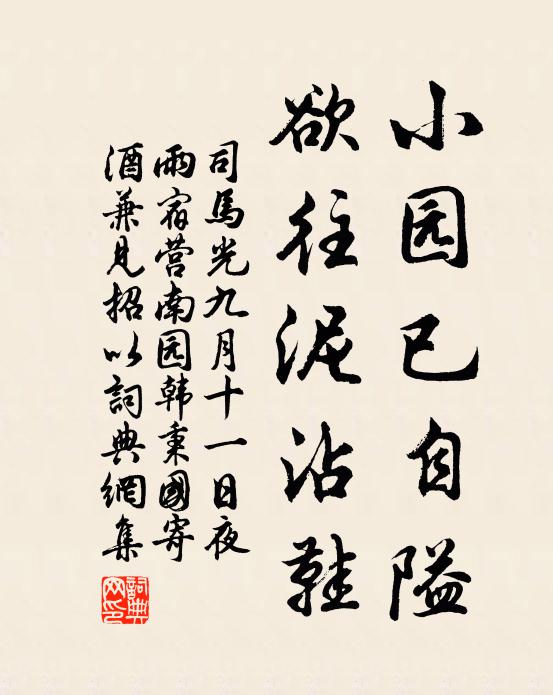 小园已自隘
欲往泥沾鞋
司馬光九月十一日夜
雨宿营南园韩秉國寄
酒兼見招以詞典網集
詞典
网印